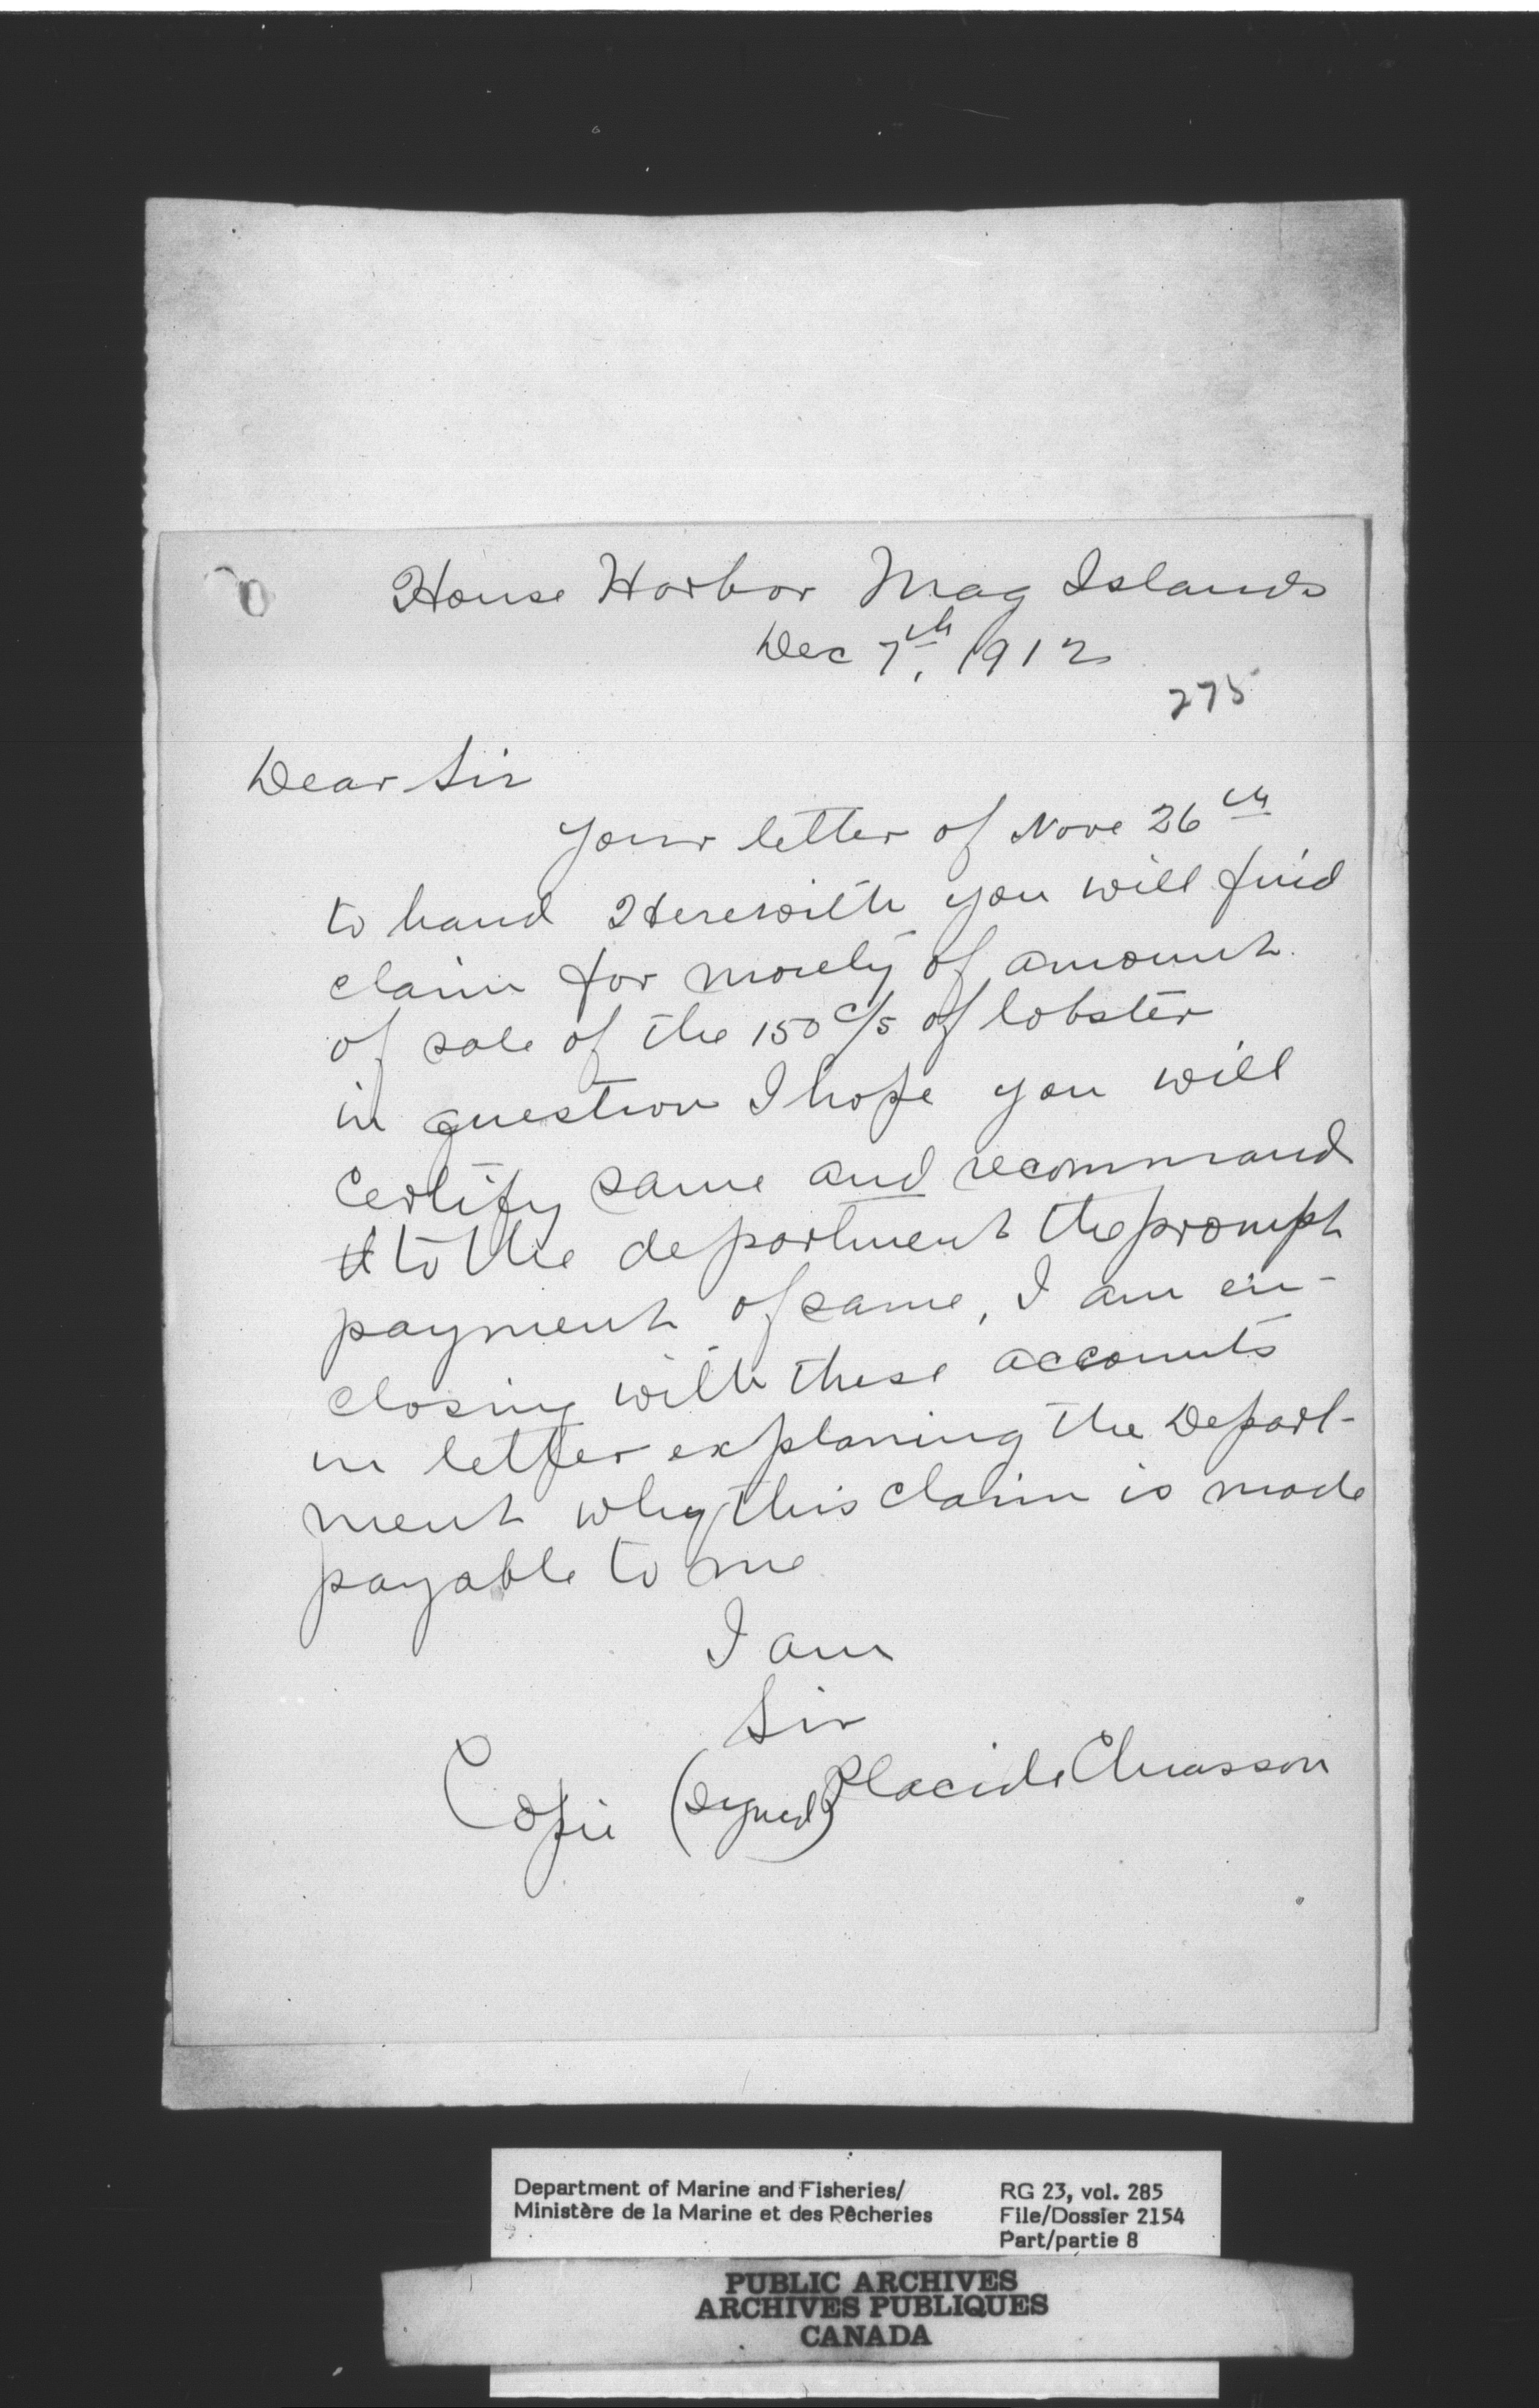 House Harbor Mag Islands
Dec 7th, 1912
275
Dear Sir
Your letter of Nove 26th
to hand Herewith you will find
claim for moiety of amount
of sale of the 150 c/s of lobster
in question I hope you will
certify same and recommand
to the department the prompt
payment of same, I am en-
closing with these accounts
in letter explaning the Depart-
ment why this claim is made
payable to me
I am
Sir
Copie (signed) Placide Chiasson
Department of Marine and Fisheries/
Ministère de la Marine et des Pêcheries
RG 23, vol. 285
File/Dossier 2154
Part/partie 8
PUBLIC ARCHIVES
ARCHIVES PUBLIQUES
CANADA